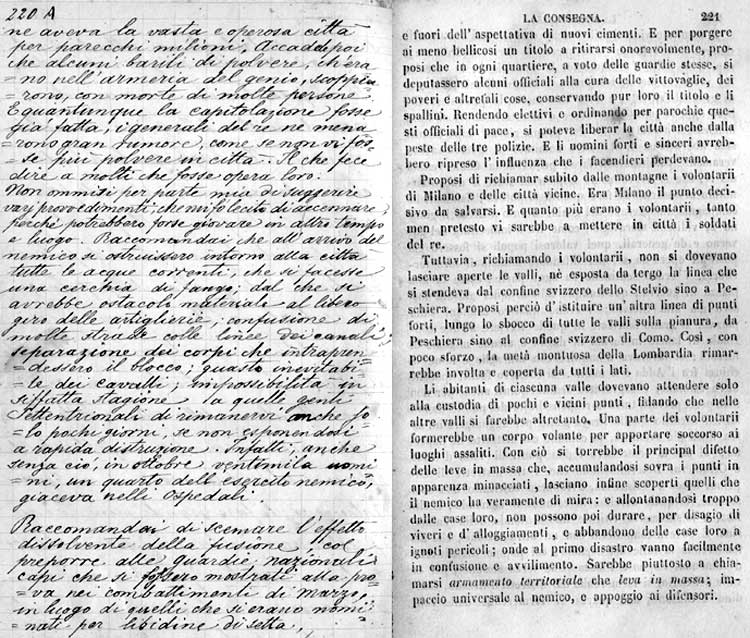 220 A
ne aveva la vasta e operosa città
per parecchi milioni. Accadde poi
che alcuni barili di polvere, ch'era
no nell'armeria del genio, scoppia
rono, con morte di molte persone.
E quantunque la capitolazione fosse
gia fatta, i generali del re ne mena
rono gran rumore, come se non vi fos
se più polvere in città. Il che fece
dire a molti che fosse opera loro.
Non ommisi per parte mia di suggerire
varj provvedimenti; che mi fo lecito di accennare,
perchè potrebbero forse giovare in altro tempo
e luogo. Raccomandai che all'arrivo del
nemico si ostruissero intorno alla città
tutte le acque correnti, che si facesse
una cerchia di fango; dal che si
avrebbe ostacolo materiale al libero
giro delle artiglierie; confusione di
molte strade colle linee dei canali;
separazione dei corpi che intrapren
dessero il blocco; guasto inevitabi
le dei cavalli; impossibilità in
siffatta stagione la quelle genti
settentrionali di rimanervi anche so
lo pochi giorni, se non esponendosi
a rapida distruzione. Infatti, anche
senza ciò, in ottobre ventimila uomi
ni, un quarto dell'esercito nemico,
giaceva nelli ospedali.
Raccomandai di scemare l'effetto
dissolvente della fusione, col
preporre alle guardie nazionali
capi che si fossero mostrati alla pro
va nei combattimenti di marzo,
in luogo di quelli che si erano nomi
nati per libidine di setta,
LA CONSEGNA. 221
e fuori dell'aspettativa di nuovi cimenti. E per porgere
ai meno bellicosi un titolo a ritirarsi onorevolmente, pro-
posi che in ogni quartiere, a voto delle guardie stesse, si
deputassero alcuni officiali alla cura delle vittovaglie, dei
poveri e altrefali cose, conservando pur loro il titolo e li
spallini. Rendendo elettivi e ordinando per parochie que-
sti officiali di pace, si poteva liberar la città anche dalla
peste delle tre polizie. E li uomini forti e sinceri avreb-
bero ripreso l'influenza che i facendieri perdevano.
Proposi di richiamar subito dalle montagne i volontarii
di Milano e delle città vicine. Era Milano il punto deci-
sivo da salvarsi. E quanto più erano i volontarii, tanto
men pretesto vi sarebbe a mettere in città i soldati
del re.
Tuttavia, richiamando i volontarii, non si dovevano
lasciare aperte le valli, nè esposta da tergo la linea che
si stendeva dal confine svizzero dello Stelvio sino a Pe-
schiera. Proposi perciò d'istituire un'altra linea di punti
forti, lungo lo sbocco di tutte le valli sulla pianura, da
Peschiera sino al confine svizzero di Como. Così, con
poco sforzo, la metà montuosa della Lombardia rimar-
rebbe involta e coperta da tutti i lati.
Li abitanti di ciascuna valle dovevano attendere solo
alla custodia di pochi e vicini punti, fidando che nelle
altre valli si farebbe altretanto. Una parte dei volontarii
formerebbe un corpo volante per apportare soccorso ai
luoghi assaliti. Con ciò si torrebbe il principal difetto
delle leve in massa che, accumulandosi sovra i punti in
apparenza minacciati, lasciano infine scoperti quelli che
il nemico ha veramente di mira: e allontanandosi troppo
dalle case loro, non possono poi durare, per disagio di
viveri e d'alloggiamenti, e abbandono delle case loro a
ignoti pericoli; onde al primo disastro vanno facilmente
in confusione e avvilimento. Sarebbe piuttosto a chia-
marsi armamento territoriale che leva in massa; im-
paccio universale al nemico, e appoggio ai difensori.